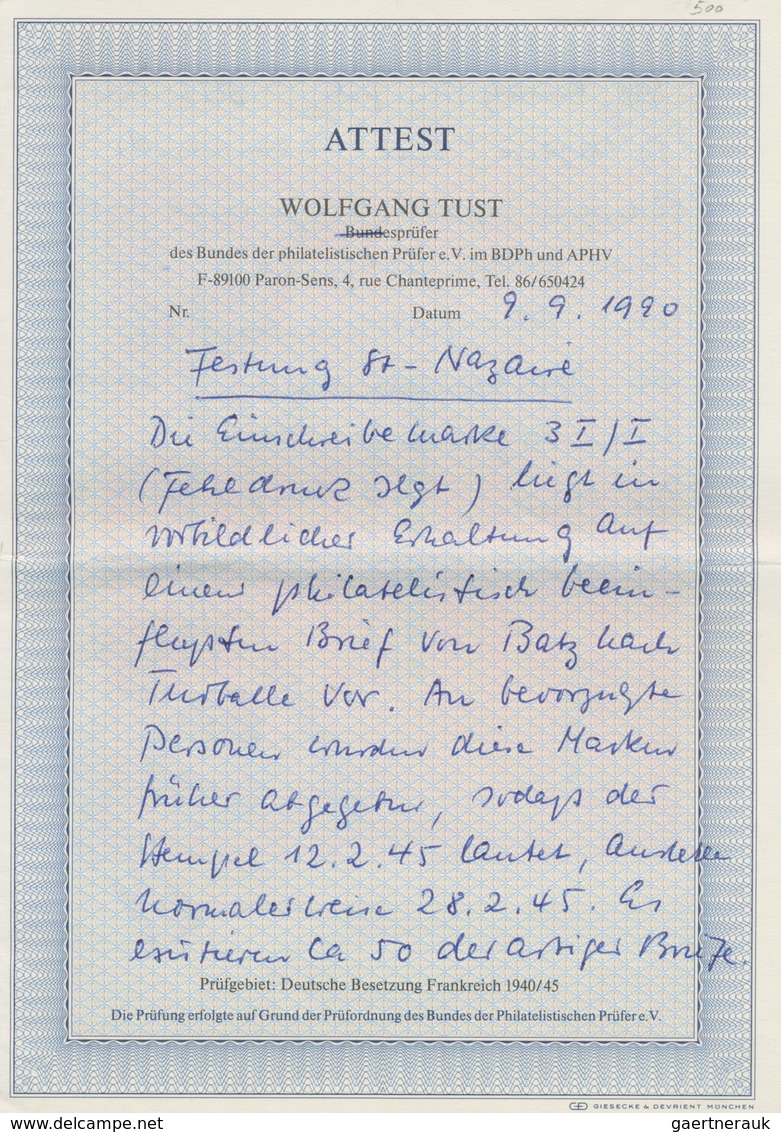 500
ATTEST
WOLFGANG TUST
Bundesprüfer
des Bundes der philatelistischen Prüfer e.V. im BDPh und APHV
F-89100 Paron-Sens, 4, rue Chanteprime, Tel. 86/650424
Nr. Datum 9. 9. 1990
Festung St-Nazaire
Die Einschreibemarke 3 I/I
(Fehldruck) liegt in
vorbildlicher Erhaltung auf
einem philatelistisch beein-
flußten Brief von Batz nach
Turballe vor. An bevorzugte
Personen wurden diese Marken
früher abgegeben, sodaß der
Stempel 12.2.45 lautet, anstelle
normalerweise 28.2.45. Es
existieren ca 50 derartiger Briefe.
Prüfgebiet: Deutsche Besetzung Frankreich 1940/45
Die Prüfung erfolgte auf Grund der Prüfordnung des Bundes der Philatelistischen Prüfer e.V.
GIESECKE & DEVRIENT MÜNCHEN
www.delcampe.net
gaertnerauk